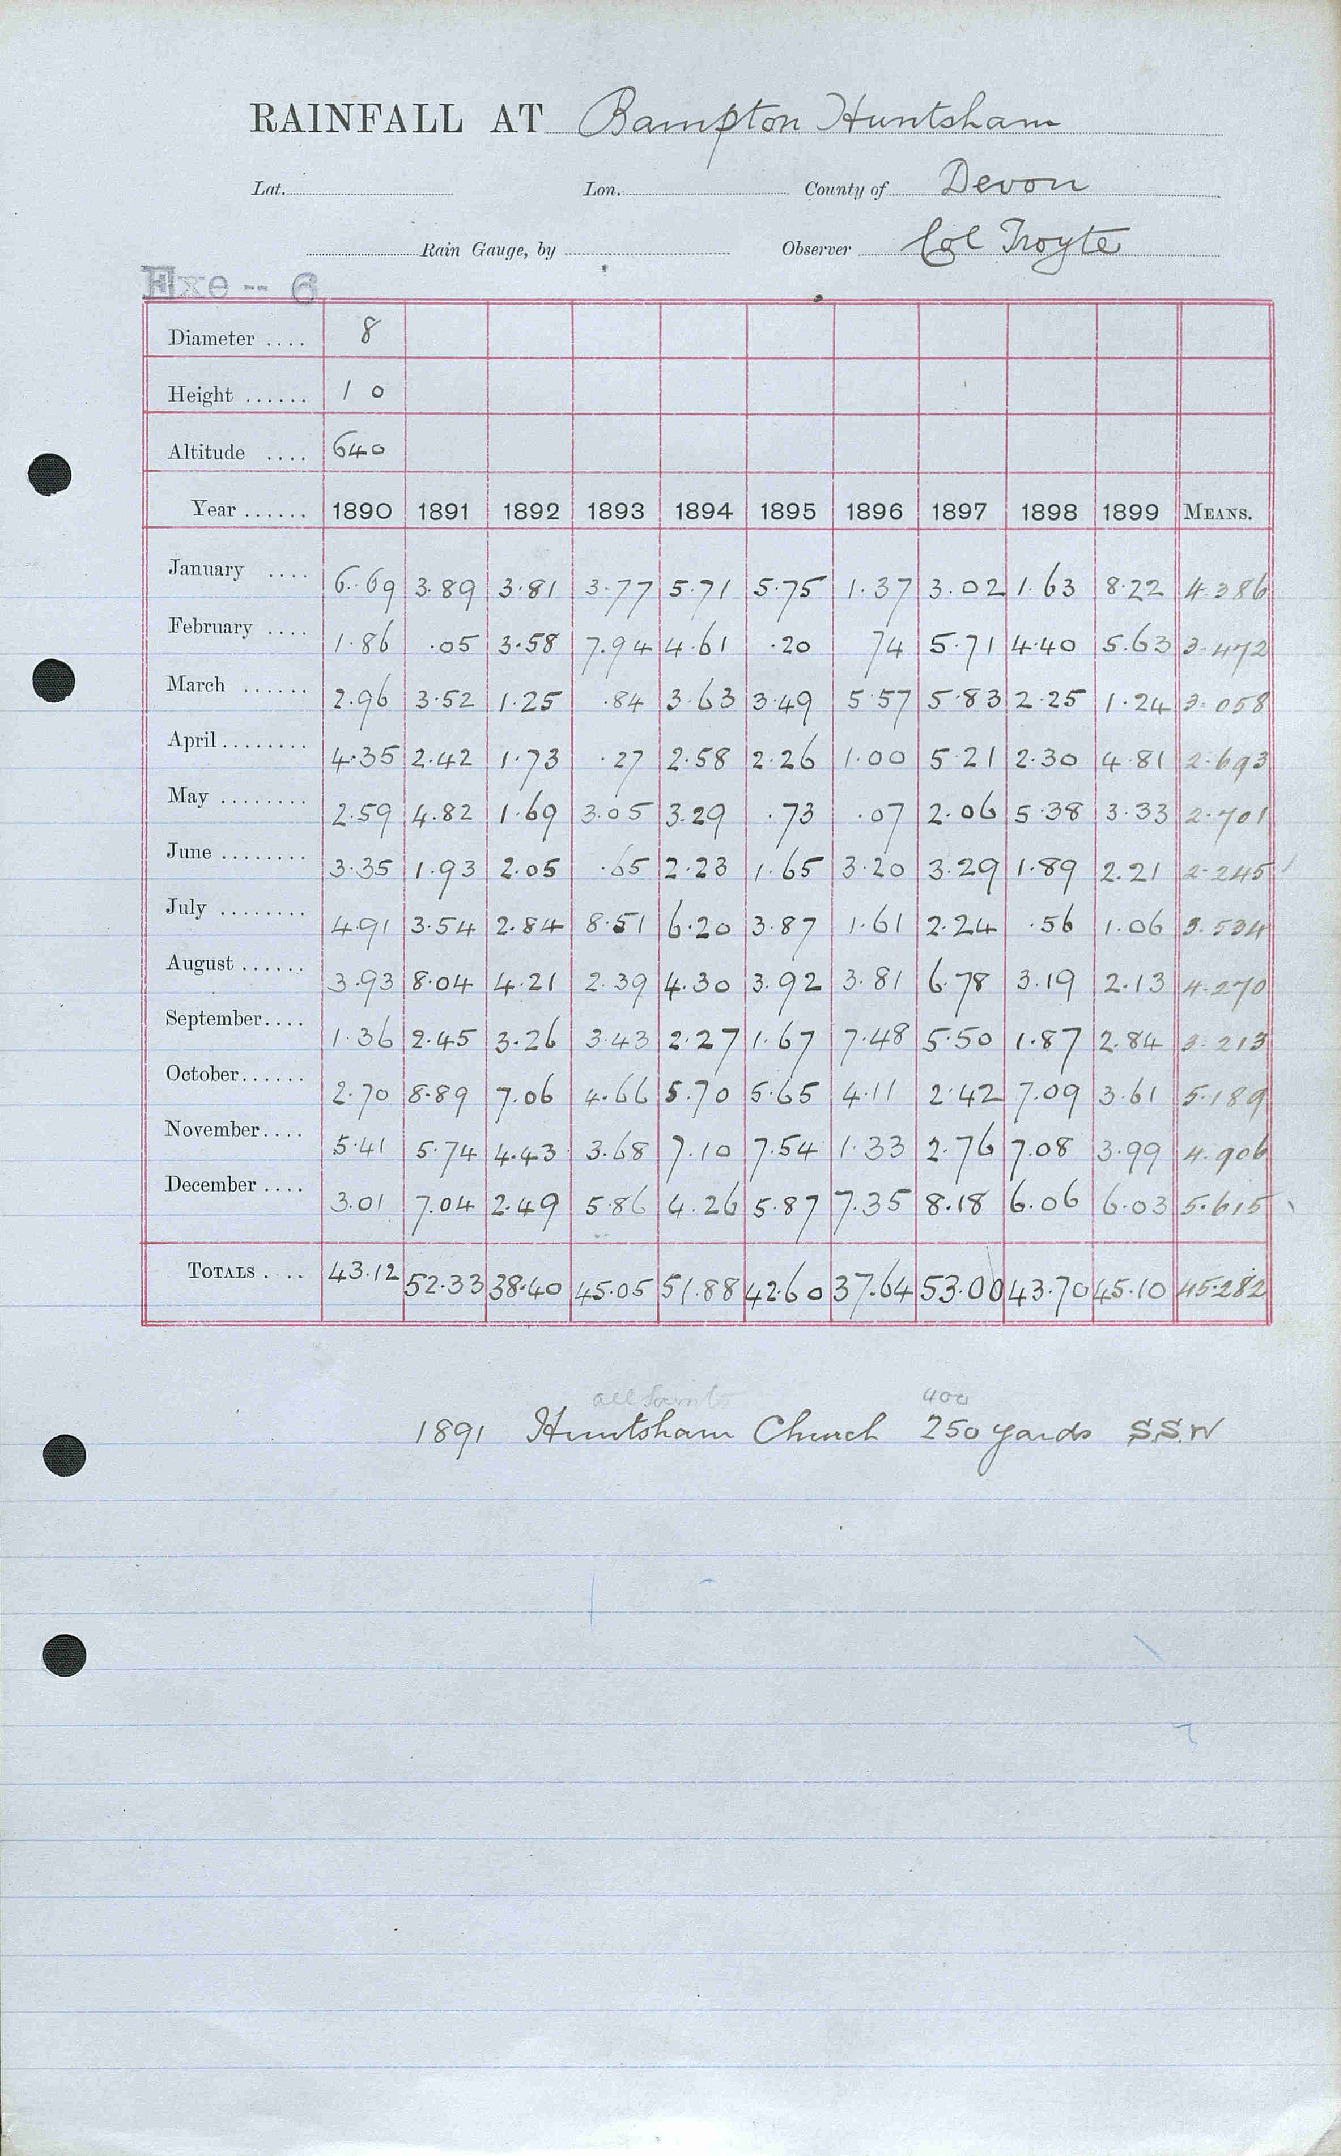 RAINFALL AT Bampton Huntsham
Lat. Lon. County of Devon
Rain Gauge, by Observer Col Troyte
Exe -- 6
Diameter .... 8
Height ...... 1 0
Altitude .... 640
Year ...... 1890 1891 1892 1893 1894 1895 1896 1897 1898 1899 MEANS.
January .... 6.69 3.89 3.81 3.77 5.71 5.75 1.37 3.02 1.63 8.22 4.386
February .... 1.86 .05 3.58 7.94 4.61 .20 74 5.71 4.40 5.63 3.472
March ...... 2.96 3.52 1.25 .84 3.63 3.49 5.57 5.83 2.25 1.24 3.058
April ........ 4.35 2.42 1.73 .27 2.58 2.26 1.00 5.21 2.30 4.81 2.693
May ........ 2.59 4.82 1.69 3.05 3.29 .73 .07 2.06 5.38 3.33 2.701
June ........ 3.35 1.93 2.05 .65 2.23 1.65 3.20 3.29 1.89 2.21 2.245
July ........ 4.91 3.54 2.84 8.51 6.20 3.87 1.61 2.24 .56 1.06 3.534
August ...... 3.93 8.04 4.21 2.39 4.30 3.92 3.81 6.78 3.19 2.13 4.270
September .... 1.36 2.45 3.26 3.43 2.27 1.67 7.48 5.50 1.87 2.84 3.213
October ...... 2.70 8.89 7.06 4.66 5.70 5.65 4.11 2.42 7.09 3.61 5.189
November .... 5.41 5.74 4.43 3.68 7.10 7.54 1.33 2.76 7.08 3.99 4.906
December .... 3.01 7.04 2.49 5.86 4.26 5.87 7.35 8.18 6.06 6.03 5.615
TOTALS .... 43.12 52.33 38.40 45.05 51.88 42.60 37.64 53.00 43.70 45.10 45.282
all Saints 400
1891 Huntsham Church 250 yards S.S.W